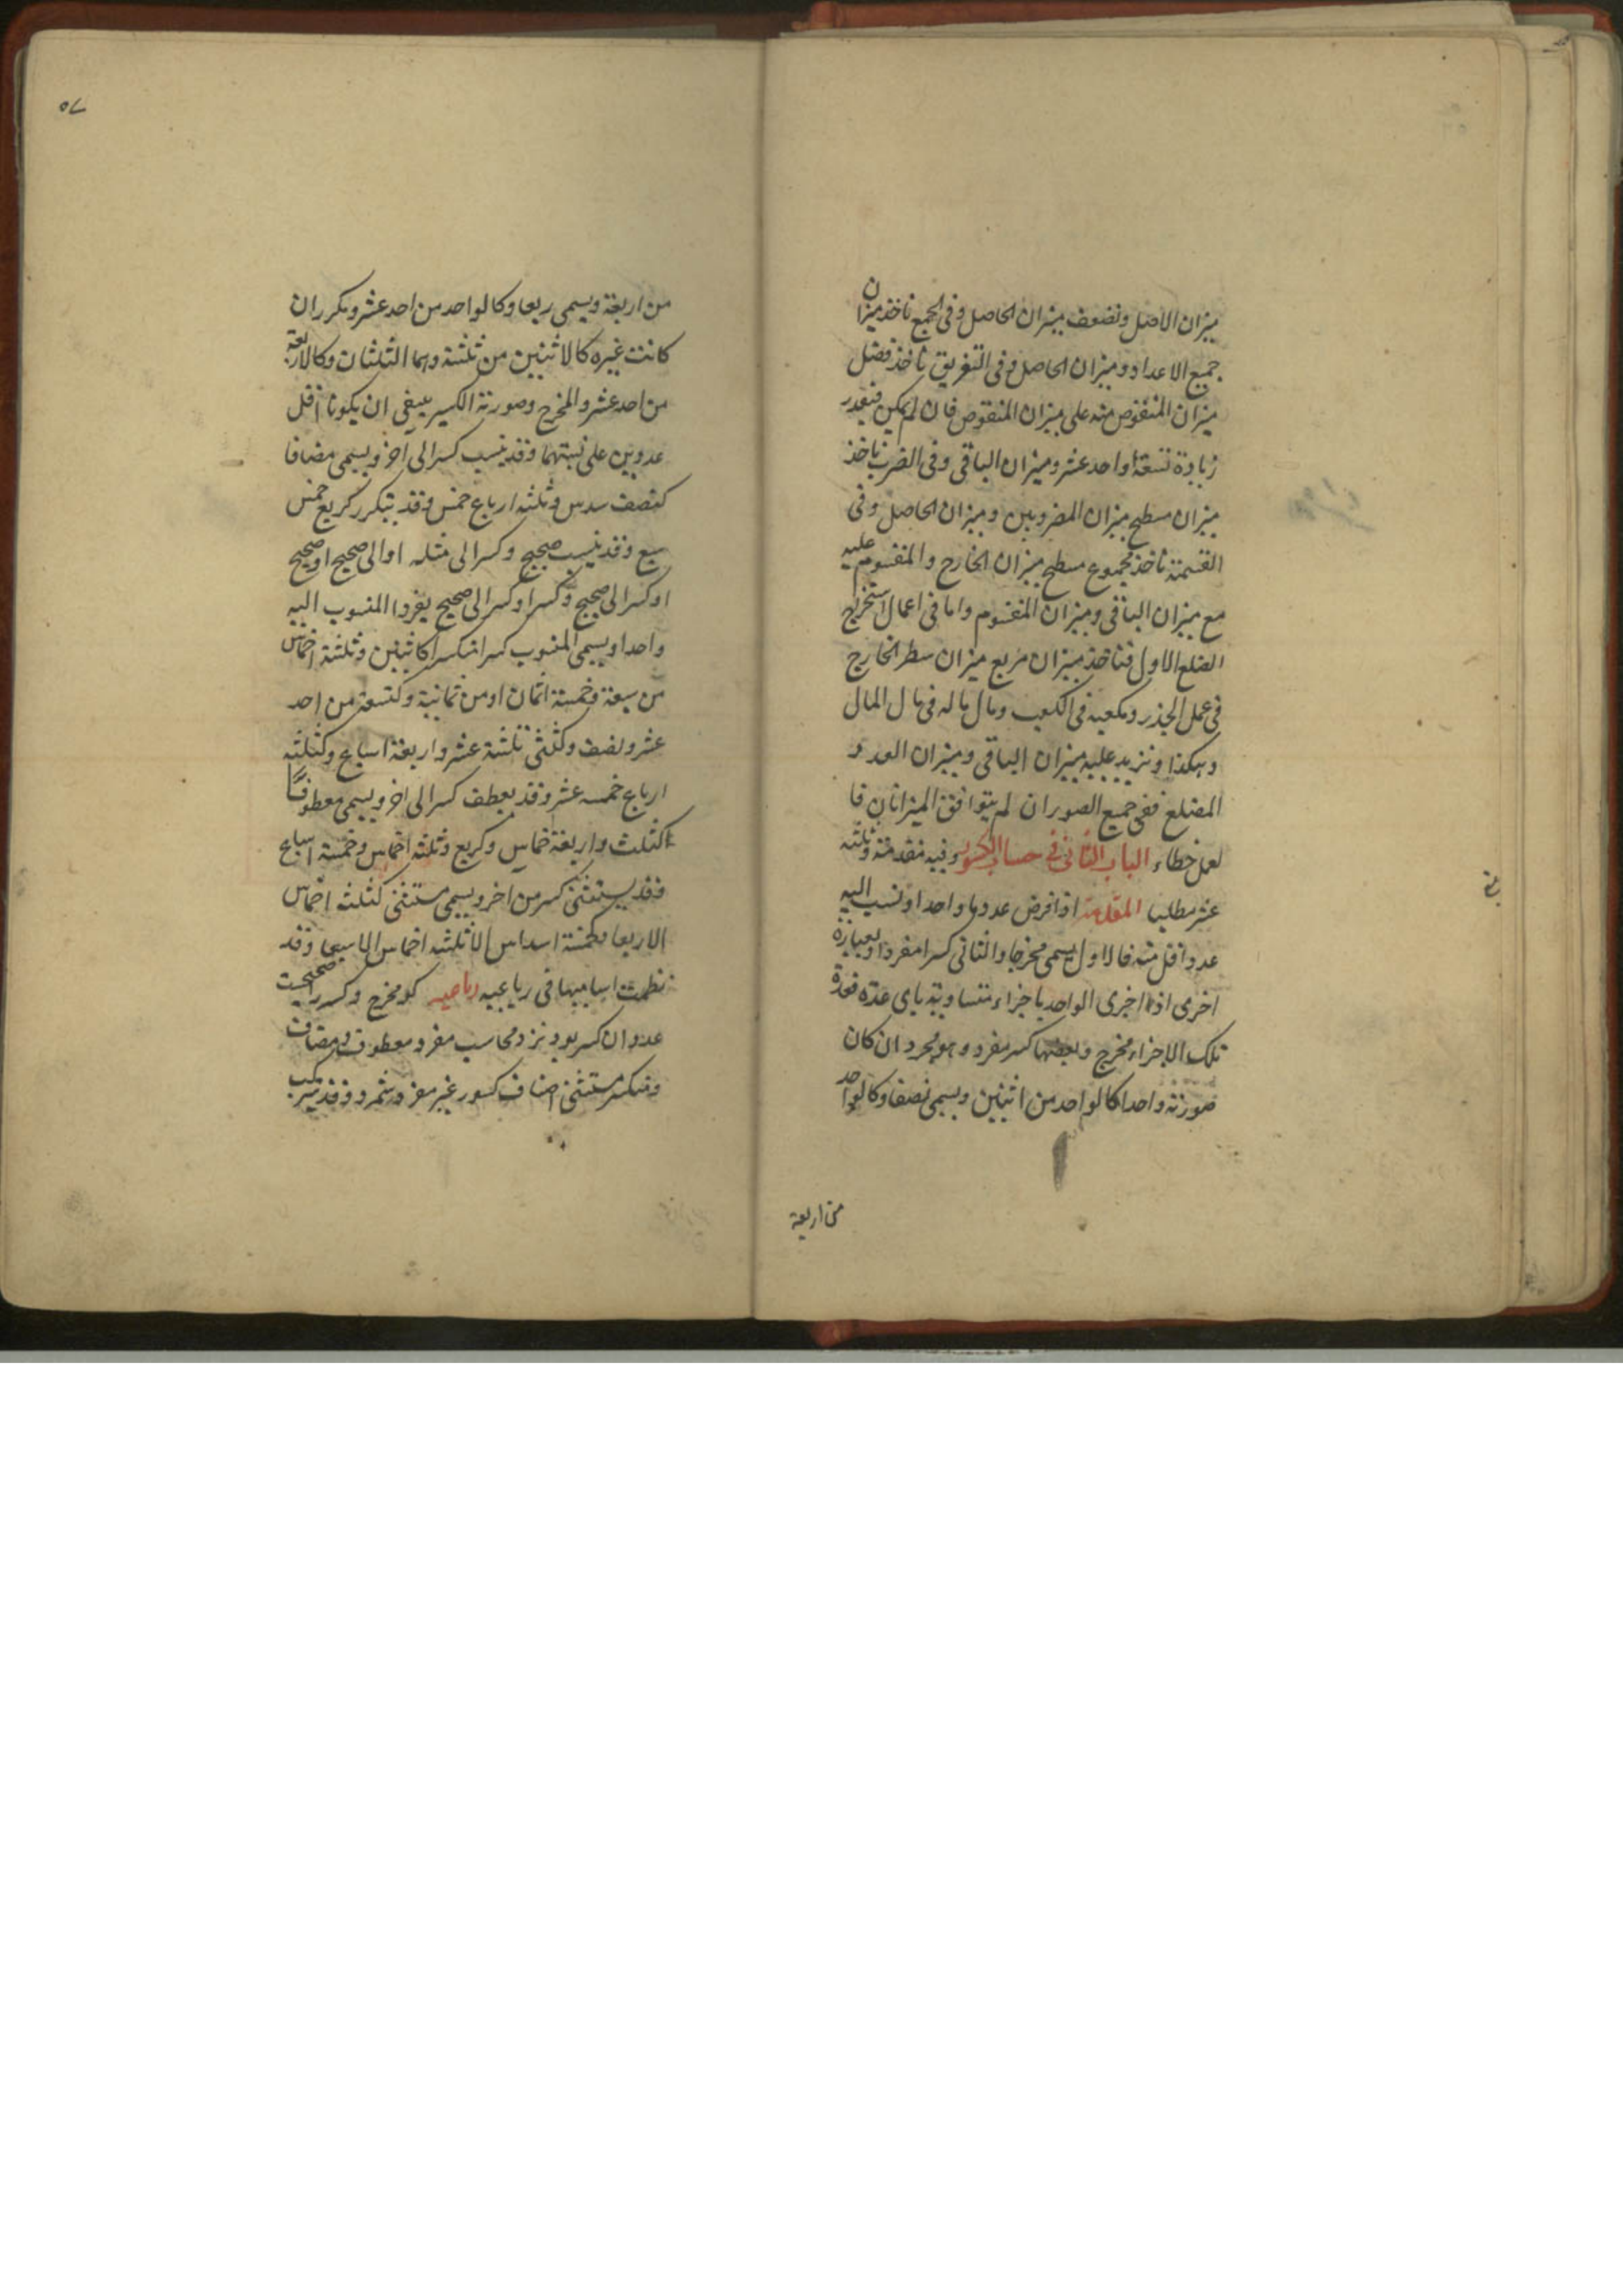 ميزان الاصل ونضعف ميزان الحاصل وفى الجمع ناخذ ميزان
جميع الاعداد وميزان الحاصل وفى التفريق ناخذ فضل
ميزان المنقوص منه على ميزان المنقوص فان لم يكن فبعد
زيادة تسعة او احد عشر وميزان الباقى وفى الضرب ناخذ
ميزان مسطح ميزان المضروبين وميزان الحاصل وفى
القسمة ناخذ مجموع مسطح ميزان الخارج والمقسوم عليه
مع ميزان الباقى وميزان المقسوم واما فى اعمال استخراج
الضلع الاول فناخذ ميزان مربع ميزان سطر الخارج
فى عمل الجذر ومكعبه فى الكعب ومال ماله فى مال المال
وهكذا ونزيد عليه ميزان الباقى وميزان العدد
المضلع ففى جميع الصور ان لم يتوافق الميزانان فا
لعمل خطاء الباب الثانى فى حساب الكسور وفيه مقدمة وثلثة
عشر مطلبا المقدمة اذا فرض عدد ما واحدا ونسب اليه
عدد اقل منه فالاول يسمى مخرجا والثانى كسرا مفردا وبعبارة
اخرى اذا اجزى الواحد باجزاء متساوية باى عدة فعدة
تلك الاجزاء مخرج وبعضها كسر مفرد وهو مجرد ان كان
صورته واحدا كالواحد من اثنين ويسمى نصفا وكالواحد
من اربعة
٥٧
من اربعة ويسمى ربعا وكالواحد من احد عشر ومكرر ان
كانت غيره كالاثنين من ثلثة وهما الثلثان وكالاربعة
من احد عشر والمخرج وصورتة الكسر ينبغى ان يكونا اقل
عددين على نسبتهما وقد ينسب كسر الى اخر ويسمى مضافا
كنصف سدس وثلثه ارباع خمس وقد يتكرر كربع خمس
سبع وقد ينسب صحيح وكسر الى مثله او الى صحيح او صحيح
او كسر الى صحيح وكسر او كسر الى صحيح يفرد المنسوب اليه
واحدا ويسمى المنسوب كسر امنكسرا كاثنين وثلثة اخماس
من سبعة وخمسة اثمان او من ثمانية وكتسعة من احد
عشر ونصف وكثلثى ثلثة عشر واربعة اسباع وكثلثه
ارباع خمسه عشر وقد يعطف كسر الى اخر ويسمى معطوفا
كثلث واربعة اخماس وكربع وثلثه اخماس وخمسة اسباع
وقد يستثنى كسر من اخر ويسمى مستثنى كثلثه اخماس
الا ربعا وكخمسة اسداس الا ثلثه اخماس الا سبعا وقد
نظمت اساميها فى رباعيه رباعيه كو مخرج وكسر را صحيحست
عدد ان كسر بود نزد محاسب مفرد معطوف ومضاف
ومنكسر مستثنى اصناف كسور غير مفرد شمرد وقد يتركب